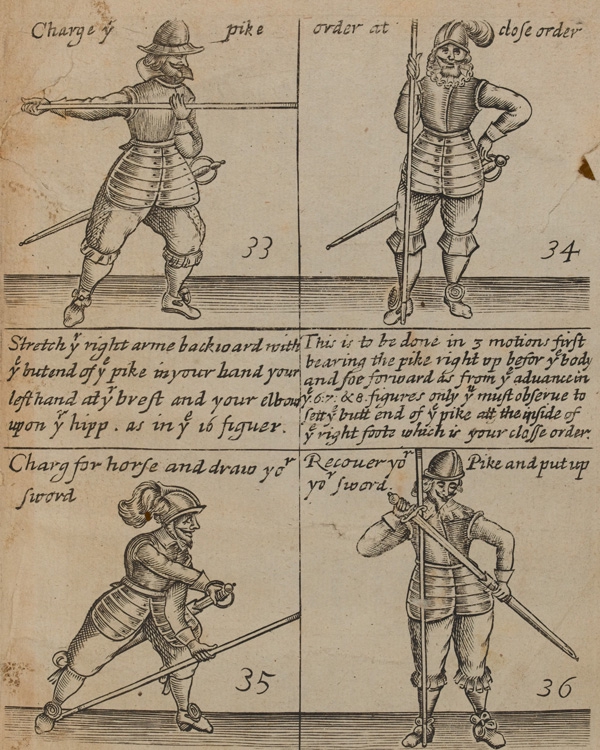 Charge yͤ pike
33
Stretch yͬ right arme backward with
yͤ butend of yͤ pike in your hand your
left hand at yͬ brest and your elbow
upon yͬ hipp. as in yͤ 16 figuer.
order at close order
34
This is to be done in 3 motions first
bearing the pike right vp befor yͤ body
and soe forward as from yͤ advance in
yͤ 6. 7. & 8. figures only yͧ must observe to
sett yͤ butt end of yͤ pike att the inside of
yͬ right foote which is your closse order.
Charg for horse and draw yoͬ
sword
35
Recouer yoͬ Pike and put up
yoͬ sword.
36